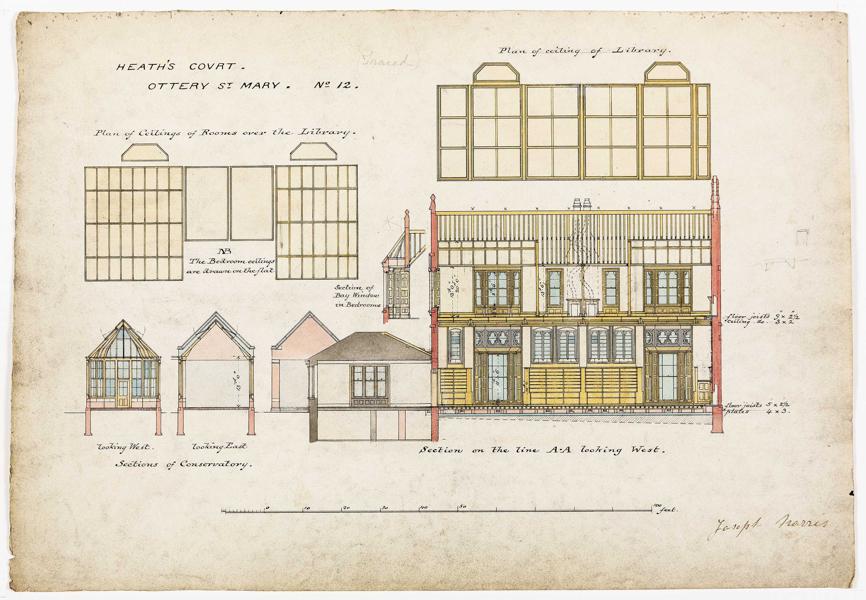 HEATH'S COVRT.
OTTERY ST MARY. No 12.
Traced
Plan of ceiling of Library.
Plan of Ceilings of Rooms over the Library.
NB
The Bedroom ceilings
are drawn on the flat
Section of
Bay Window
in Bedrooms
floor joists 9" x 2½"
Ceiling do. 3 x 2
floor joists 5 x 2½
plates 4 x 3
looking West.
looking East
Sections of Conservatory.
Section on the line A-A looking West.
0 10 20 30 40 50 100 feet.
Joseph Norris